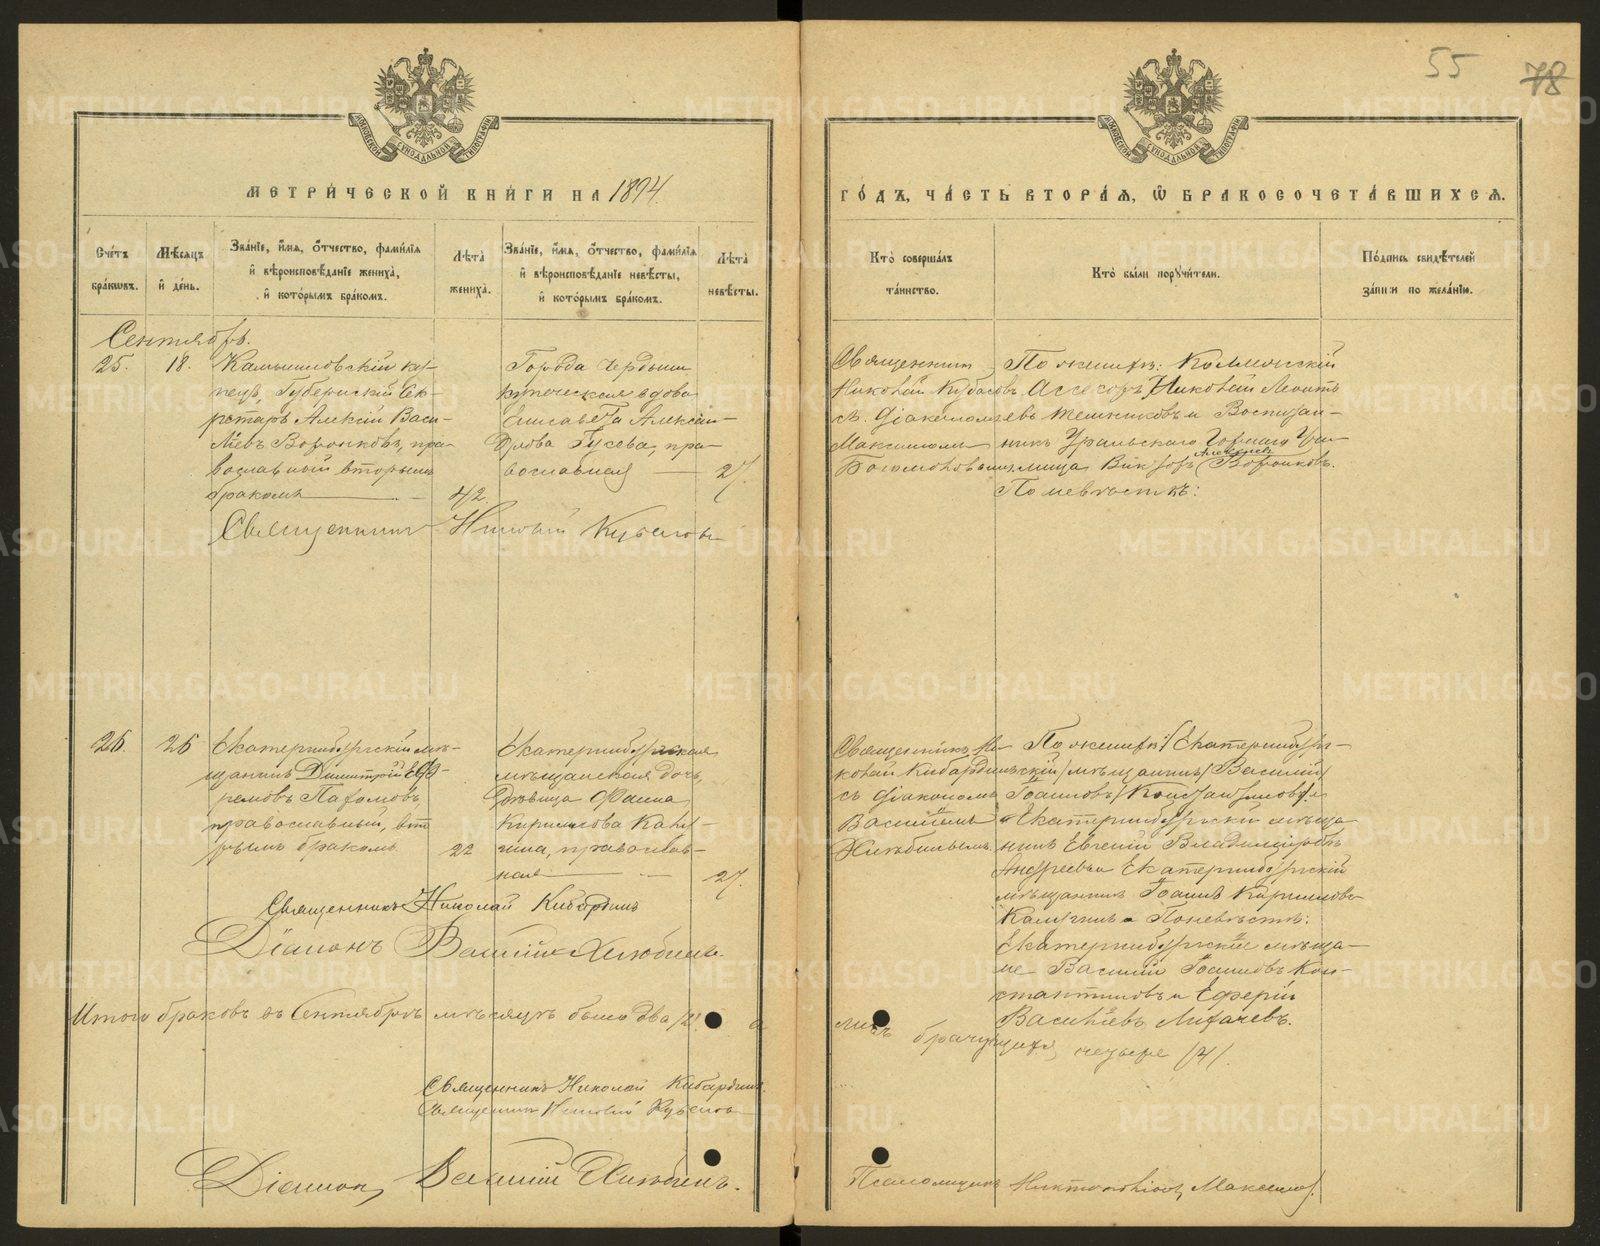 55
78
МОСКОВСКОЙ СѴНОДАЛЬНОЙ ТИПОГРАФІИ
МОСКОВСКОЙ СѴНОДАЛЬНОЙ ТИПОГРАФІИ
МЕТРИ́ЧЕСКОЙ КНИ́ГИ НА 1894
ГО́ДЪ, ЧА́СТЬ ВТОРА́Я, Ѽ БРАКОСОЧЕТА́ВШИХСЯ.
Сче́тъ
бра́кѡвъ.
Мѣ́сяцъ
и́ де́нь.
Зва́нїе, и҆́мя, о҆́тчество, фами́лїя
и҆ вѣроисповѣ́данїе жениха̀,
и҆ кото́рымъ бра́комъ.
Лѣ́та
жениха̀.
Зва́нїе, и҆́мя, о҆́тчество, фами́лїя
и҆ вѣроисповѣ́данїе невѣ́сты,
и҆ кото́рымъ бра́комъ.
Лѣ́та
невѣ́сты.
Кто̀ соверша́лъ
та́инство.
Кто̀ бы́ли порꙋчи́тели.
По́дпись свидѣ́телей
за́писи по жела́нїю.
Сентябрь.
25.
18.
Камышловскій ку-
пецъ, Губернскій Сек-
ретарь Алексій Васи-
льевъ Воронковъ, пра-
вославный вторымъ
бракомъ
42.
Города Чердыни
купеческая вдова
Елисавета Алексан-
дрова Гусева, пра-
вославная
27.
Священникъ
Николай Кубасовъ
съ діакономъ
Максимомъ
Богомоловымъ
По женихѣ: Коллежскій
Ассесоръ Николай Леонть-
евъ и Воспитан-
никъ Уральскаго Горнаго Учи-
лища Викторъ Алексѣевъ Воронковъ.
По невѣстѣ:
Священникъ Николай Кубасовъ
26.
26
Екатеринбургскій мѣ-
щанинъ Димитрій Еф-
ремовъ Пахомовъ,
православный, вто-
рымъ бракомъ
22
Екатеринбургская
мѣщанская дочь,
дѣвица Фаина
Кириллова Калу-
гина, православ-
ная
27.
Священникъ Ни-
колай Кибардинъ
съ діакономъ
Василіемъ
Хлѣбинымъ.
По женихѣ: Екатеринбург-
скій мѣщанинъ Василій
Іоанновъ Константиновъ
Екатеринбургскій мѣща-
нинъ Евгеній Владиміровъ
Андреевъ и Екатеринбургскій
мѣщанинъ Іоаннъ Кирилловъ
Калугинъ. По невѣстѣ:
Екатеринбургскіе мѣща-
не Василій Іоанновъ Кон-
стантиновъ и
Васильевъ Лихачевъ.
Священникъ Николай Кибардинъ
Діаконъ Василій Хлѣбинъ.
Итого браковъ въ Сентябрѣ мѣсяцѣ было два /2/. а
лицъ брачущихся четыре /4/.
Священникъ Николай Кибардинъ.
Священникъ Николай Кубасовъ
Діаконъ Василій Хлѣбинъ.
Псаломщикъ